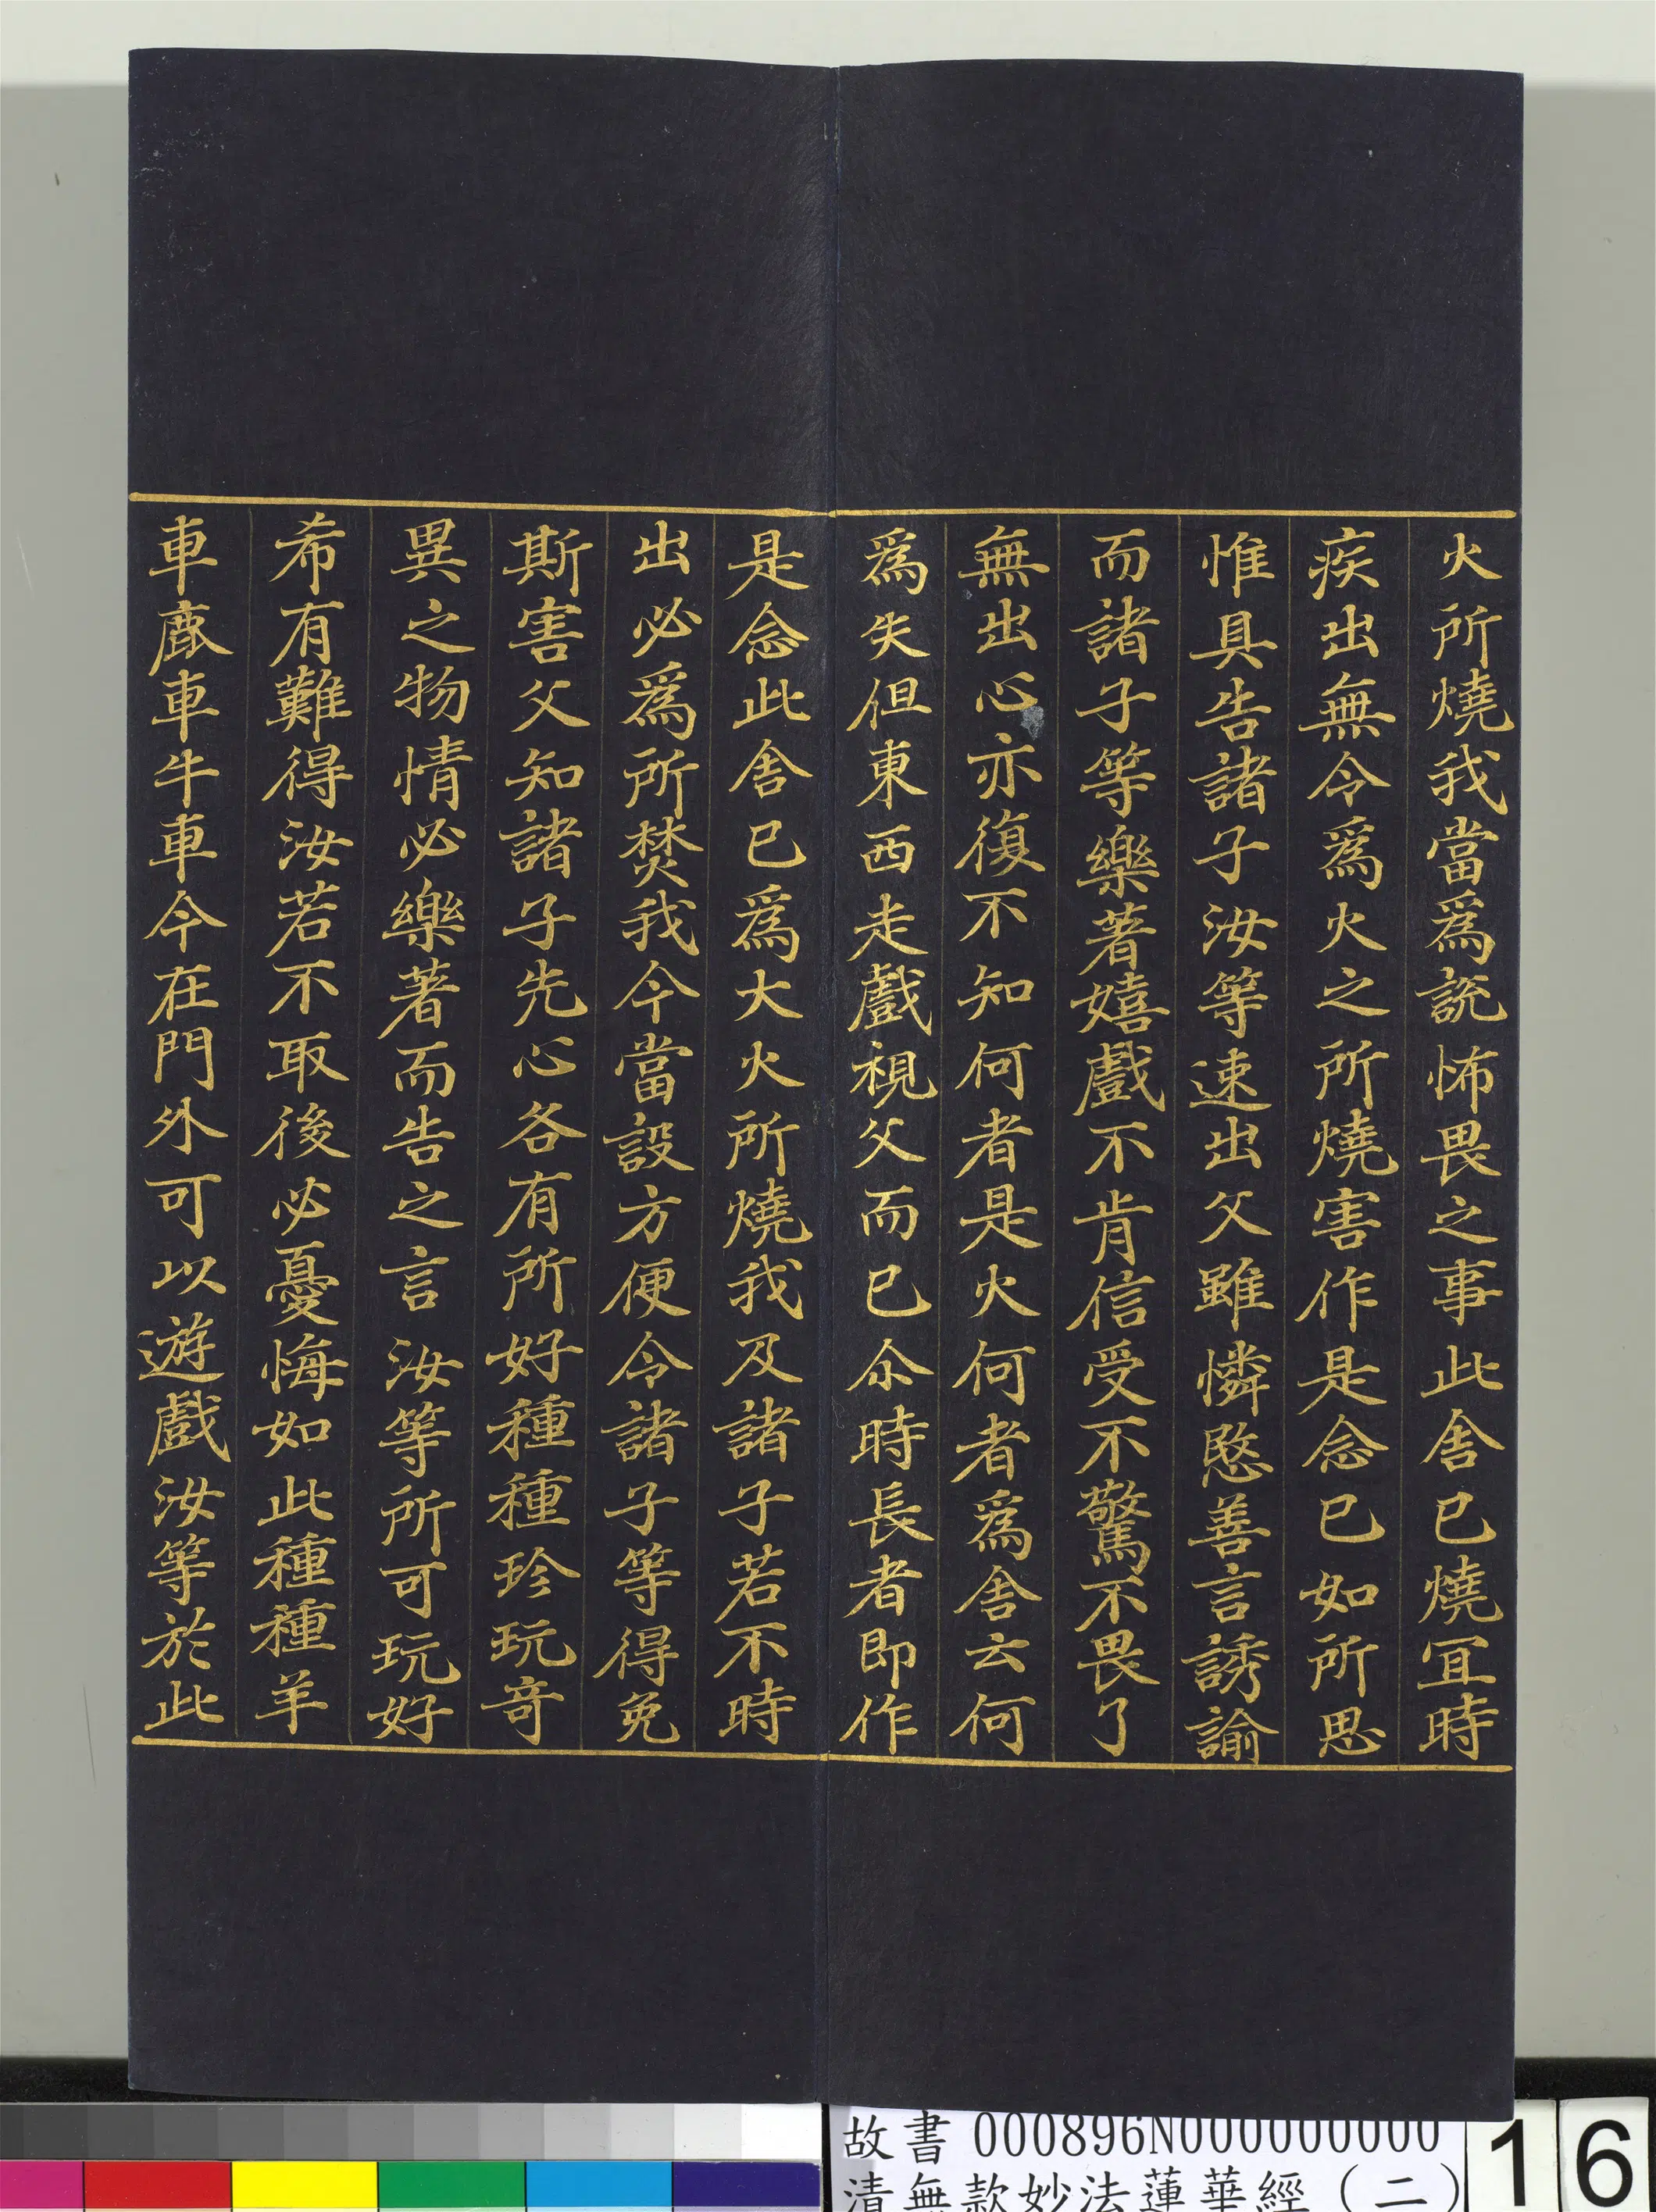 火所燒我當爲說怖畏之事此舍已燒冝時
疾出無令爲火之所燒害作是念已如所思
惟具告諸子汝等速出父雖憐愍善言誘諭
而諸子等樂著嬉戲不肯信受不驚不畏了
無出心亦復不知何者是火何者爲舍云何
爲失但東西走戲視父而已尒時長者即作
是念此舍已爲大火所燒我及諸子若不時
出必爲所焚我今當設方便令諸子等得免
斯害父知諸子先心各有所好種種珍玩竒
異之物情必樂著而告之言汝等所可玩好
希有難得汝若不取後必憂悔如此種種羊
車鹿車牛車今在門外可以遊戲汝等於此
故書 000896N000000000
清無款妙法蓮華經(二)
16